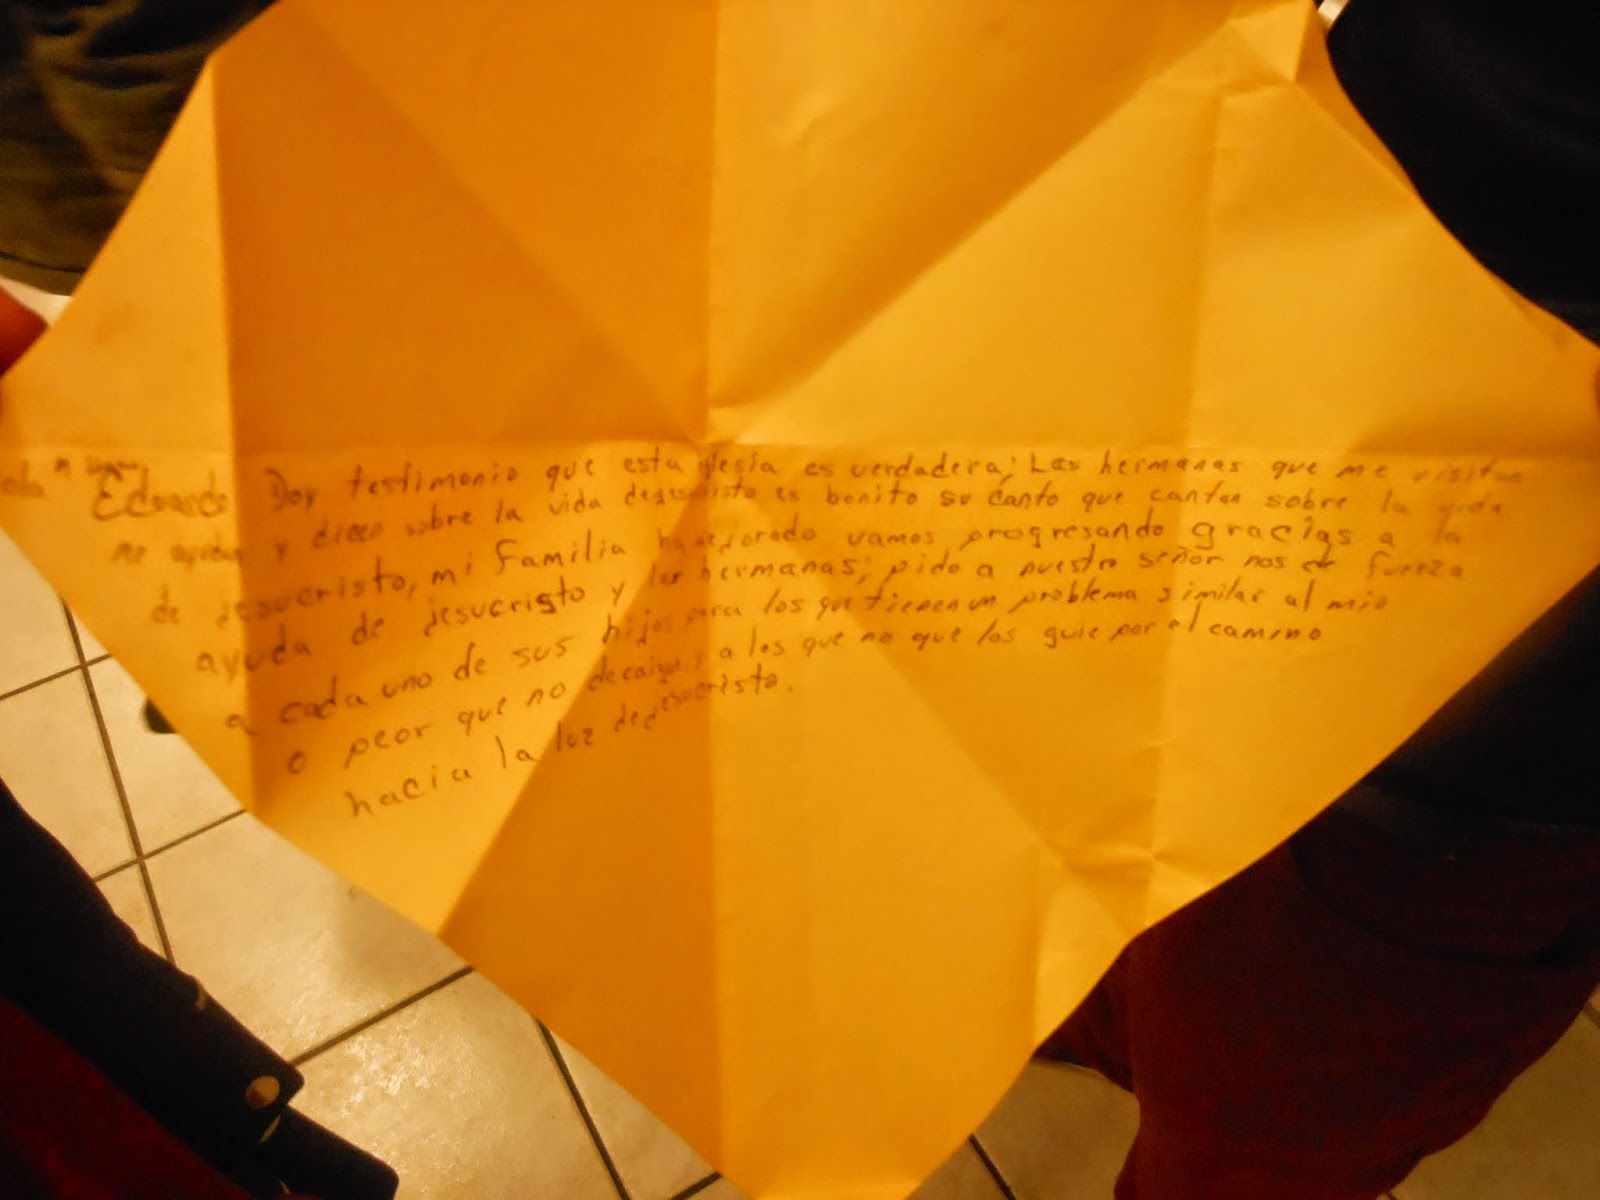 ola m llamo Eduardo Doy testimonio que esta iglesia es verdadera; Las hermanas que me visitan
me ayudan y dicen sobre la vida dejesucristo es bonito su canto que cantan sobre la vida
de jesucristo, mi familia ha mejorado vamos progresando gracias a la
ayuda de jesucristo y las hermanas; pido a nuestro señor nos de fuerza
a cada uno de sus hijos para los que tienen un problema similar al mio
o peor que no decaigan y a los que no que los guie por el camino
hacia la luz dejesucristo.